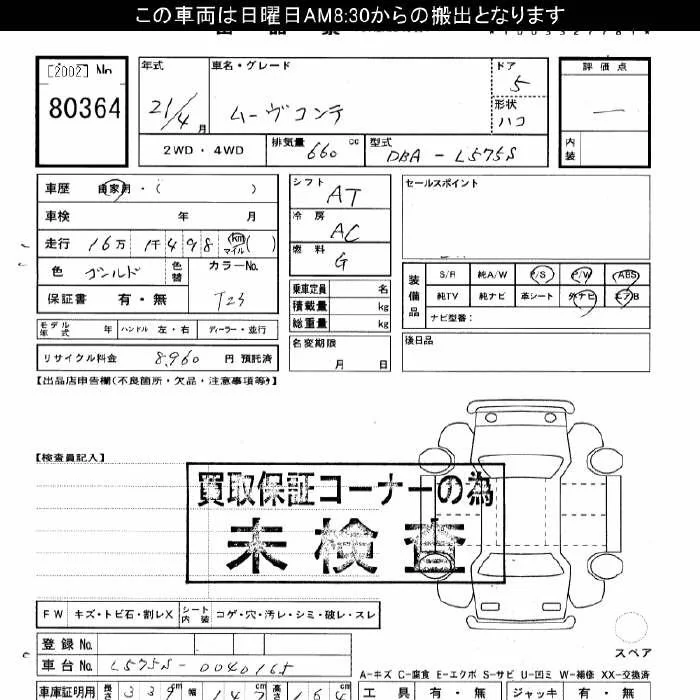 この車両は日曜日AM8:30からの搬出となります
[2002] No
80364
年式 21/4 月
車名・グレード ムーヴコンテ
ドア 5
形状 ハコ
評価点 —
内装
2WD・4WD
排気量 660 cc
型式 DBA-L575S
車歴 自家用・( )
車検 年 月
走行 16万 1千498 km マイル ( )
色 ゴールド 色替
カラーNo. T23
保証書 有・無
モデル年式 年 ハンドル 左・右 ディーラー・並行
リサイクル料金 8,960 円 預託済
シフト AT
冷房 AC
燃料 G
乗車定員 名
積載量 kg
総重量 kg
名変期限 月 日
セールスポイント
装備品
S/R 純A/W P/S P/W ABS
純TV 純ナビ 革シート 外ナビ エアB
ナビ型番:
後日品
【出品店申告欄(不良箇所・欠品・注意事項等)】
【検査員記入】
買取保証コーナーの為
未検査
FW キズ・トビ石・割レX シート内装 コゲ・穴・汚レ・シミ・破レ・スレ
スペア
登録 No.
車台 No. L575S-0040165
A-キズ C-腐食 E-エクボ S-サビ U-凹ミ W-補修 XX-交換済
車庫証明用 長さ 339 幅 147 高さ 164
工具 有・無 ジャッキ 有・無